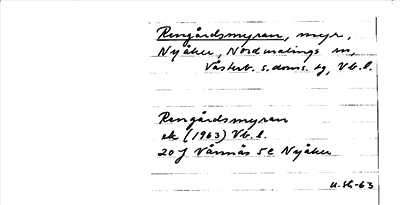 Rengårdsmyran, myr,
Nyåker, Nordmalings sn,
Västerb. s. doms. tg, Vb. l.
Rengårdsmyran
ek (1963) Vb. l.
20 J Vännäs 5 e Nyåker
u. sh-63